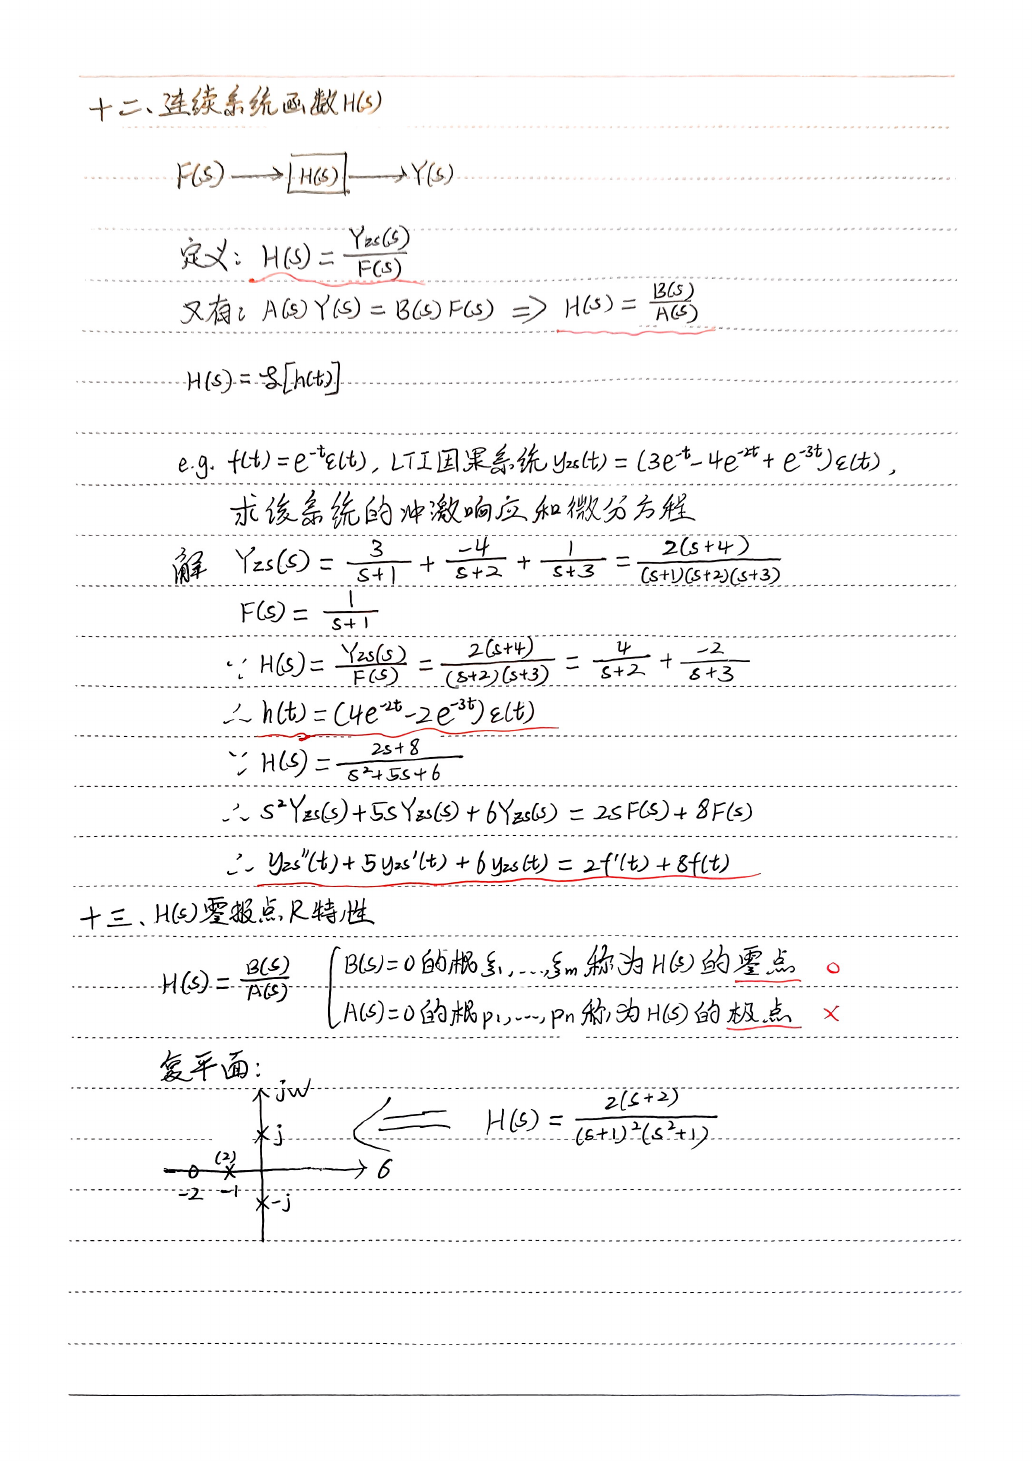 十二、连续系统函数H(s)
F(s) → H(s) → Y(s)
定义: H(s) = Yzs(s)/F(s)
又有: A(s)Y(s) = B(s)F(s) => H(s) = B(s)/A(s)
H(s) = ℒ[h(t)]
e.g. f(t) = e^{-t}ε(t), LTI因果系统 yzs(t) = (3e^{-t} - 4e^{-2t} + e^{-3t})ε(t),
求该系统的冲激响应和微分方程
解 Yzs(s) = 3/(s+1) + -4/(s+2) + 1/(s+3) = 2(s+4)/((s+1)(s+2)(s+3))
F(s) = 1/(s+1)
∵ H(s) = Yzs(s)/F(s) = 2(s+4)/((s+2)(s+3)) = 4/(s+2) + -2/(s+3)
∴ h(t) = (4e^{-2t} - 2e^{-3t})ε(t)
∵ H(s) = (2s+8)/(s²+5s+6)
∴ s²Yzs(s) + 5sYzs(s) + 6Yzs(s) = 2sF(s) + 8F(s)
∴ yzs''(t) + 5yzs'(t) + 6yzs(t) = 2f'(t) + 8f(t)
十三、H(s)零极点及特性
H(s) = B(s)/A(s) { B(s)=0的根ξ1,...,ξm称为H(s)的零点 ○
A(s)=0的根p1,...,pn称为H(s)的极点 ×
复平面:
jw
H(s) = 2(s+2)/((s+1)²(s²+1))
j
(2)
σ
-2 -1
-j